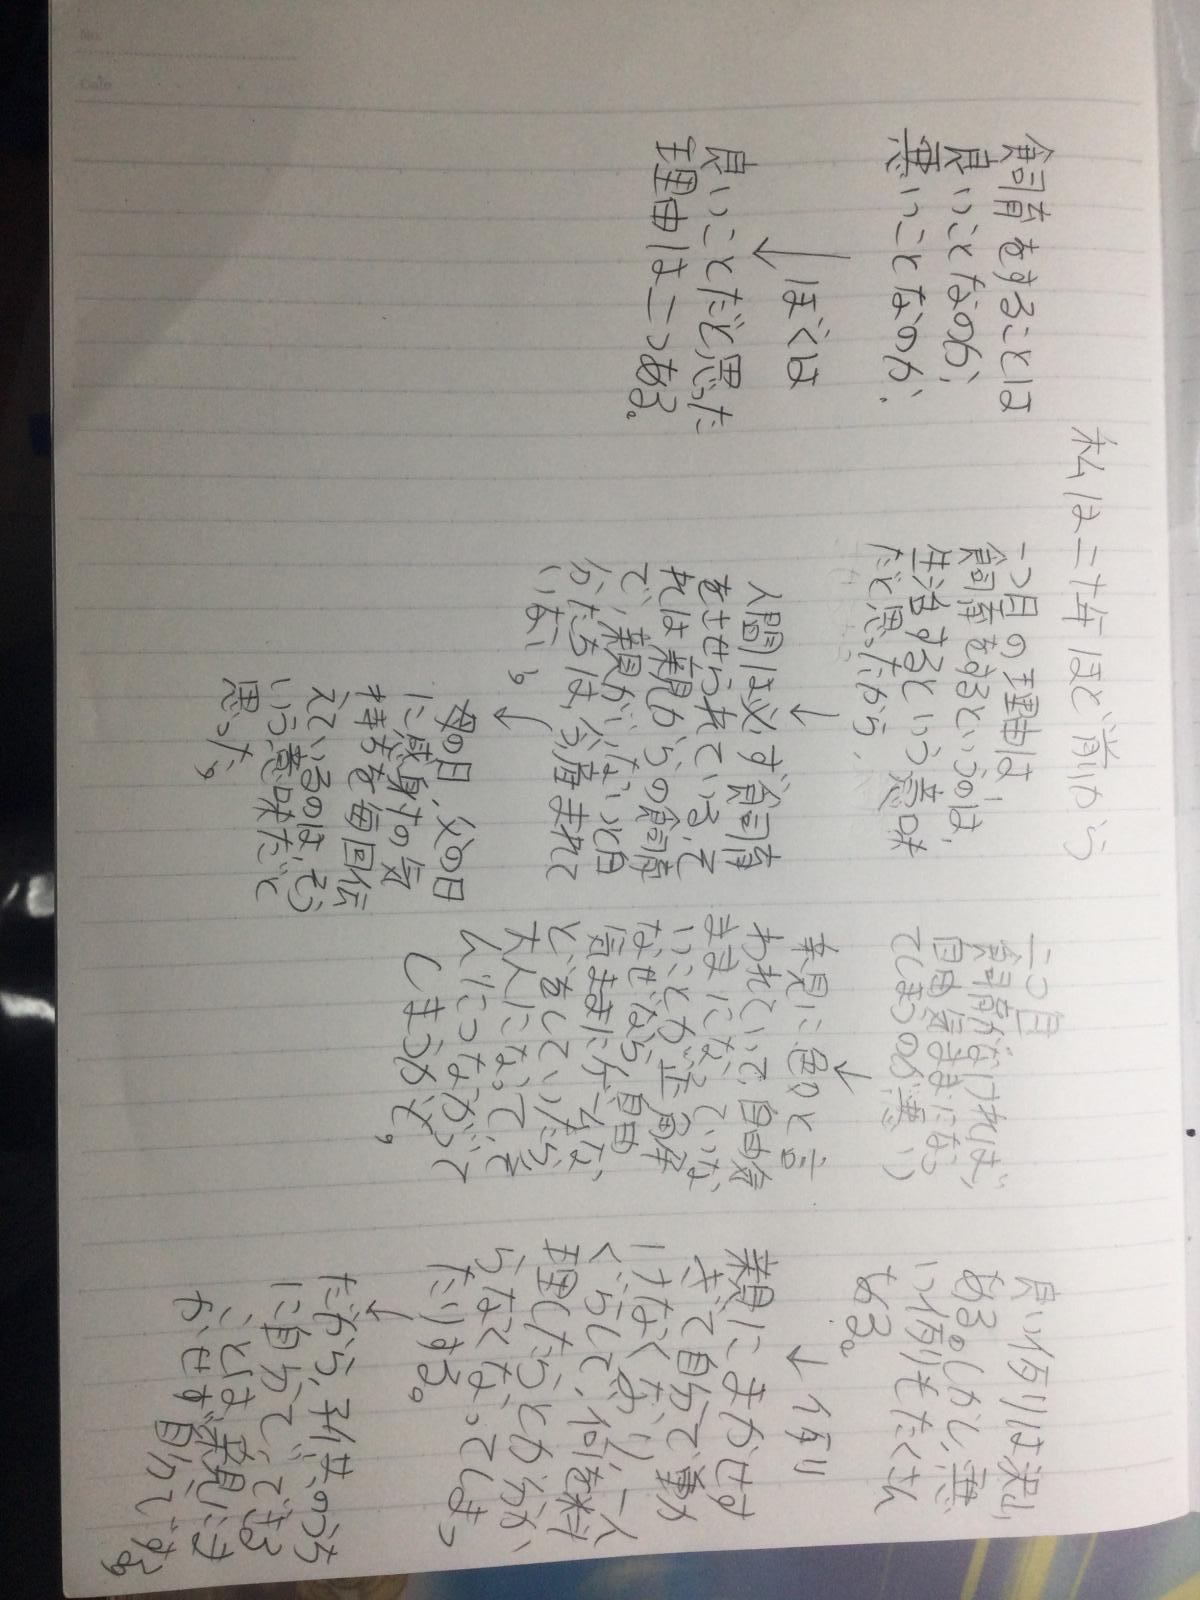 飼育をすることは
良いことなのか、
悪いことなのか、
ぼくは
良いことだと思った
理由は二つある。
私は二十年ほど前から
一つ目の理由は、
飼育をするというのは、
生活するという意味
だと思ったから、
人間は必ず飼育
をさせられている、そ
れは親からの飼育
で、親がいないと自
分たちは今産まれて
いない。
母の日、父の日
に感謝の気
持ちを毎回伝
えているのは、そう
いう意味だと
思った。
二つ目
飼育がなければ、
自由気ままになっ
てしまうのが悪い)
親に色々と言
われていて、自由気
ままになっていな
いことが正解
なぜなら、自由
気ままにゲームな
どをしていたら、
大人になって、そ
んにつながって
しまうから。
良い例は沢山
ある。しかし、悪
い例もたくさん
ある。
例
親にまかせす
ぎて自分で動か
けなくなり、一人
ぐらして、何を料
理したらとか分か
らなくなってしまっ
たりする。
だから、子供のうち
に自分で、できる
ことは親にま
かせず自分でする。